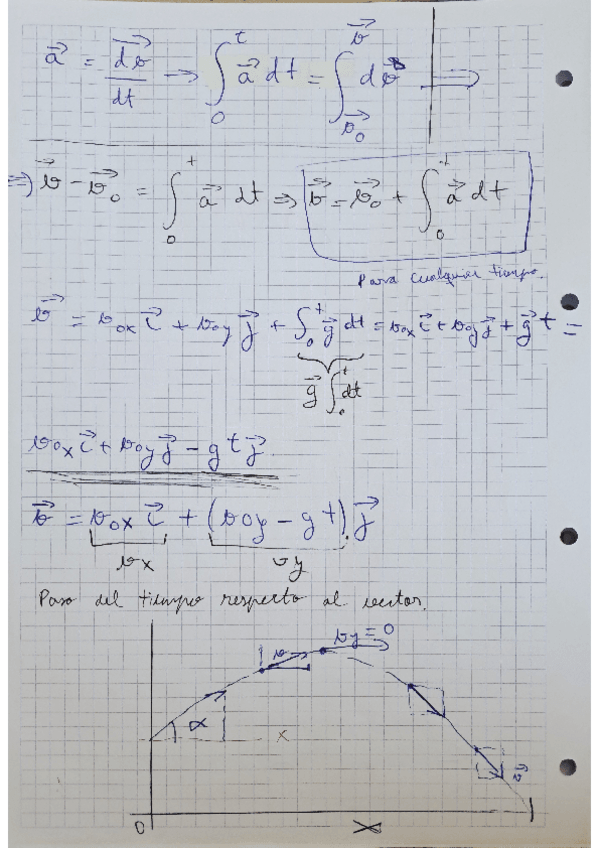 a⃗ = dv⃗/dt → ∫₀ᵗ a⃗ dt = ∫_{v⃗₀}^{v⃗} dv⃗ ⇒
⇒ v⃗ - v⃗₀ = ∫₀ᵗ a⃗ dt ⇒ v⃗ = v⃗₀ + ∫₀ᵗ a⃗ dt
Para cualquier tiempo.
v⃗ = v₀ₓ i⃗ + v₀y j⃗ + ∫₀ᵗ g⃗ dt = v₀ₓ i⃗ + v₀y j⃗ + g⃗ t =
g⃗ ∫₀ᵗ dt
v₀ₓ i⃗ + v₀y j⃗ - g t j⃗
v⃗ = v₀ₓ i⃗ + (v₀y - g t) . j⃗
vx vy
Paso del tiempo respecto al vector.
v vy = 0
α x
v⃗
0 X